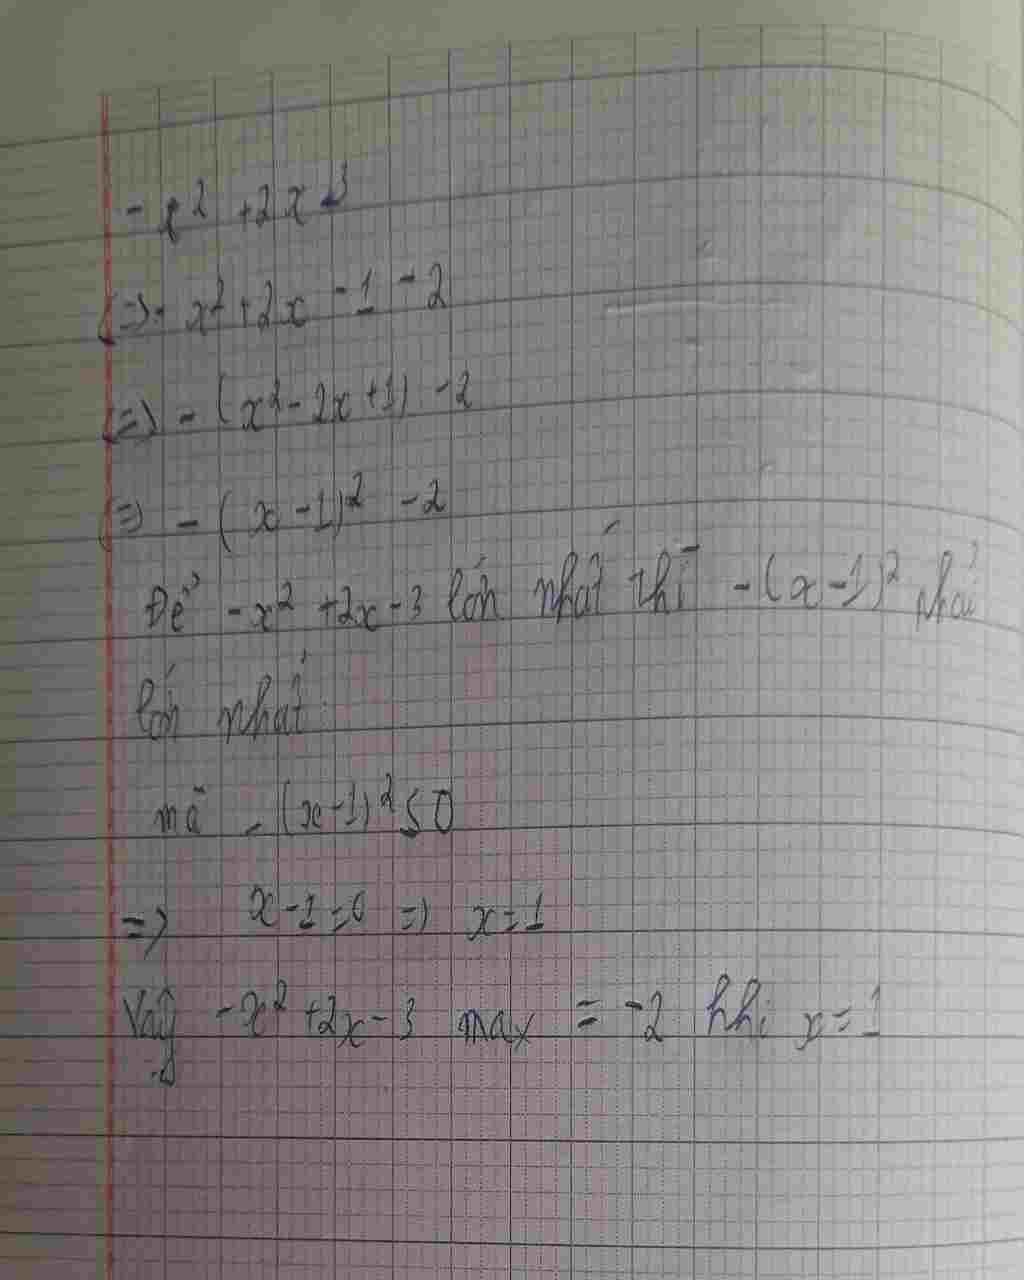 - x² + 2x - 3
(=) - x² + 2x - 1 - 2
(=) - (x² - 2x + 1) - 2
(=) - (x - 1)² - 2
Để - x² + 2x - 3 lớn nhất thì - (x - 1)² phải
lớn nhất
mà - (x - 1)² ≤ 0
=) x - 1 = 0 =) x = 1
Vậy - x² + 2x - 3 max = -2 khi x = 1